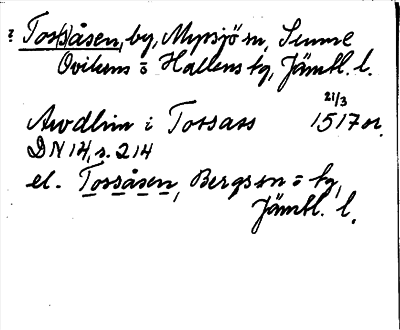 ? Toss(s)åsen, by, Myssjö sn, Sunne
Ovikens o Hallens tg, Jämtl. l.
21/3
Awdhn i Tossass 1517 or.
DN 14, s. 214
el. Tossåsen, Bergs sn o tg,
Jämtl. l.